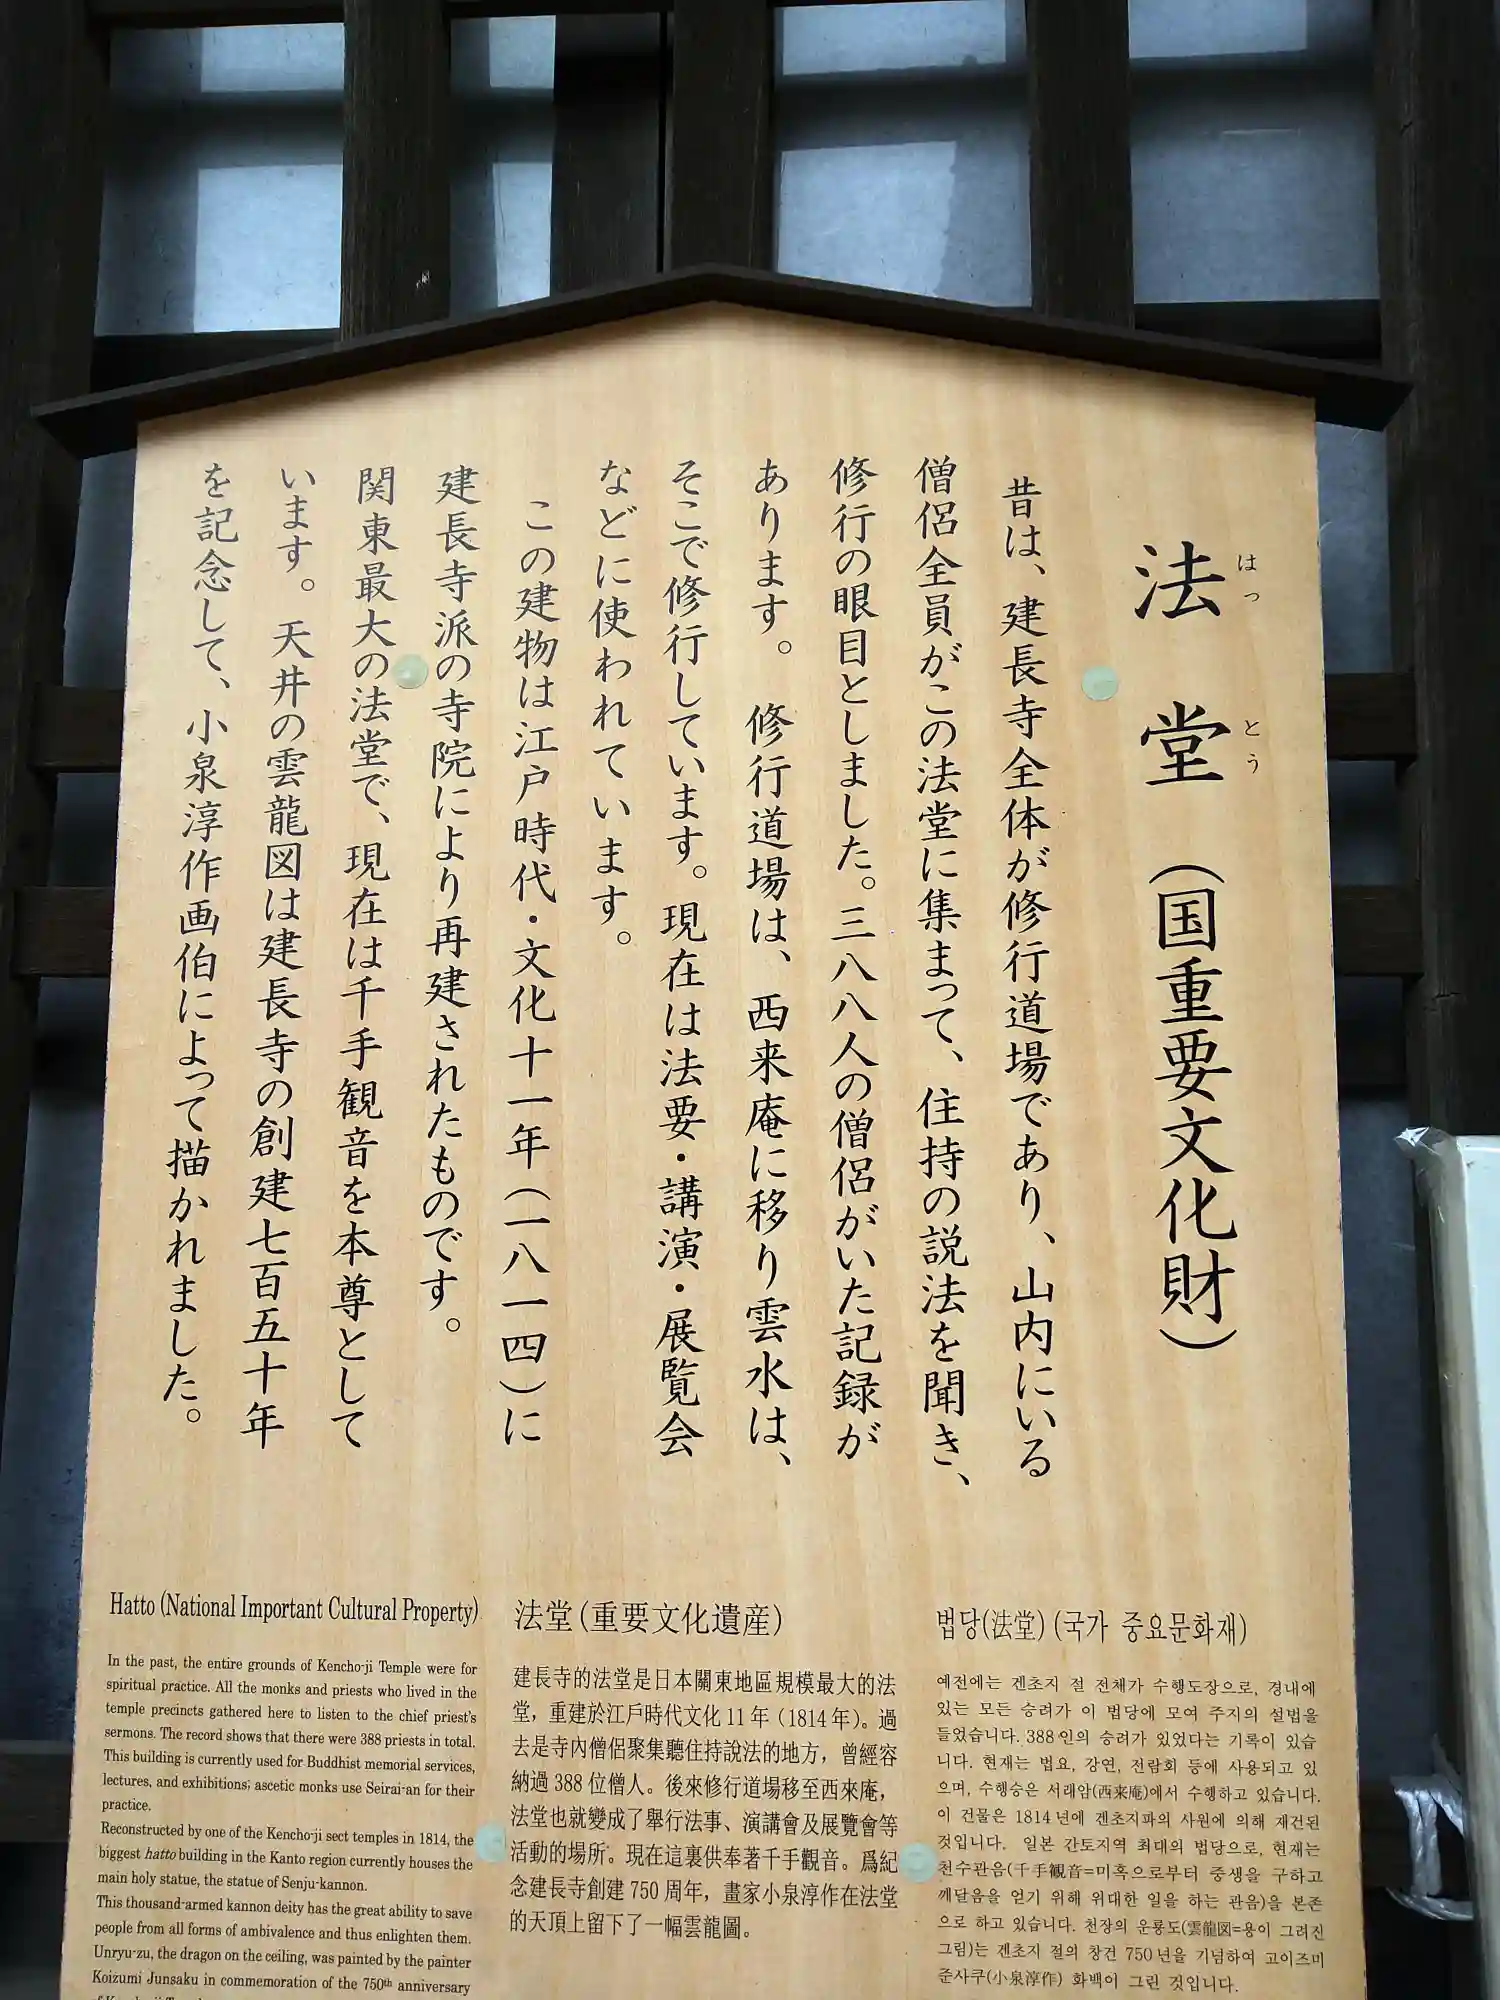 法堂（国重要文化財）
はっ とう
昔は、建長寺全体が修行道場であり、山内にいる
僧侶全員がこの法堂に集まって、住持の説法を聞き、
修行の眼目としました。三八八人の僧侶がいた記録が
あります。　修行道場は、西来庵に移り雲水は、
そこで修行しています。現在は法要・講演・展覧会
などに使われています。
この建物は江戸時代・文化十一年（一八一四）に
建長寺派の寺院により再建されたものです。
関東最大の法堂で、現在は千手観音を本尊として
います。天井の雲龍図は建長寺の創建七百五十年
を記念して、小泉淳作画伯によって描かれました。
Hatto (National Important Cultural Property)
In the past, the entire grounds of Kencho-ji Temple were for
spiritual practice. All the monks and priests who lived in the
temple precincts gathered here to listen to the chief priest's
sermons. The record shows that there were 388 priests in total.
This building is currently used for Buddhist memorial services,
lectures, and exhibitions; ascetic monks use Seirai-an for their
practice.
Reconstructed by one of the Kencho-ji sect temples in 1814, the
biggest hatto building in the Kanto region currently houses the
main holy statue, the statue of Senju-kannon.
This thousand-armed kannon deity has the great ability to save
people from all forms of ambivalence and thus enlighten them.
Unryu-zu, the dragon on the ceiling, was painted by the painter
Koizumi Junsaku in commemoration of the 750th anniversary
法堂（重要文化遺産）
建長寺的法堂是日本關東地區規模最大的法
堂，重建於江戶時代文化11年（1814年）。過
去是寺內僧侶聚集聽住持說法的地方，曾經容
納過388位僧人。後來修行道場移至西來庵，
法堂也就變成了舉行法事、演講會及展覽會等
活動的場所。現在這裏供奉著千手觀音。爲紀
念建長寺創建750周年，畫家小泉淳作在法堂
的天頂上留下了一幅雲龍圖。
법당(法堂) (국가 중요문화재)
예전에는 겐초지 절 전체가 수행도장으로, 경내에
있는 모든 승려가 이 법당에 모여 주지의 설법을
들었습니다. 388인의 승려가 있었다는 기록이 있습
니다. 현재는 법요, 강연, 전람회 등에 사용되고 있
으며, 수행승은 서래암(西来庵)에서 수행하고 있습니다.
이 건물은 1814년에 겐초지파의 사원에 의해 재건된
것입니다. 일본 간토지역 최대의 법당으로, 현재는
천수관음(千手観音=미혹으로부터 중생을 구하고
깨달음을 얻기 위해 위대한 일을 하는 관음)을 본존
으로 하고 있습니다. 천장의 운룡도(雲龍図=용이 그려진
그림)는 겐초지 절의 창건 750년을 기념하여 고이즈미
준사쿠(小泉淳作) 화백이 그린 것입니다.